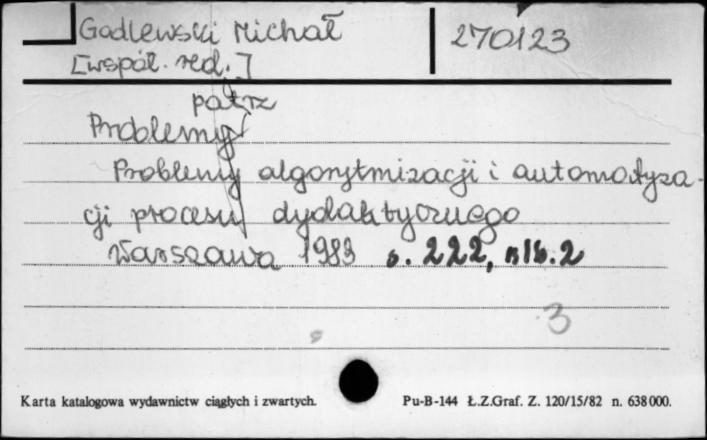 Godlewski Michał
270123
[współ. red.]
patrz
Problemy
Problemy algorytmizacji i automatyza-
cji procesu dydaktycznego
Warszawa 1983 s. 222, nlb. 2
3
Karta katalogowa wydawnictw ciągłych i zwartych.
Pu-B-144 Ł.Z.Graf. Z. 120/15/82 n. 638000.